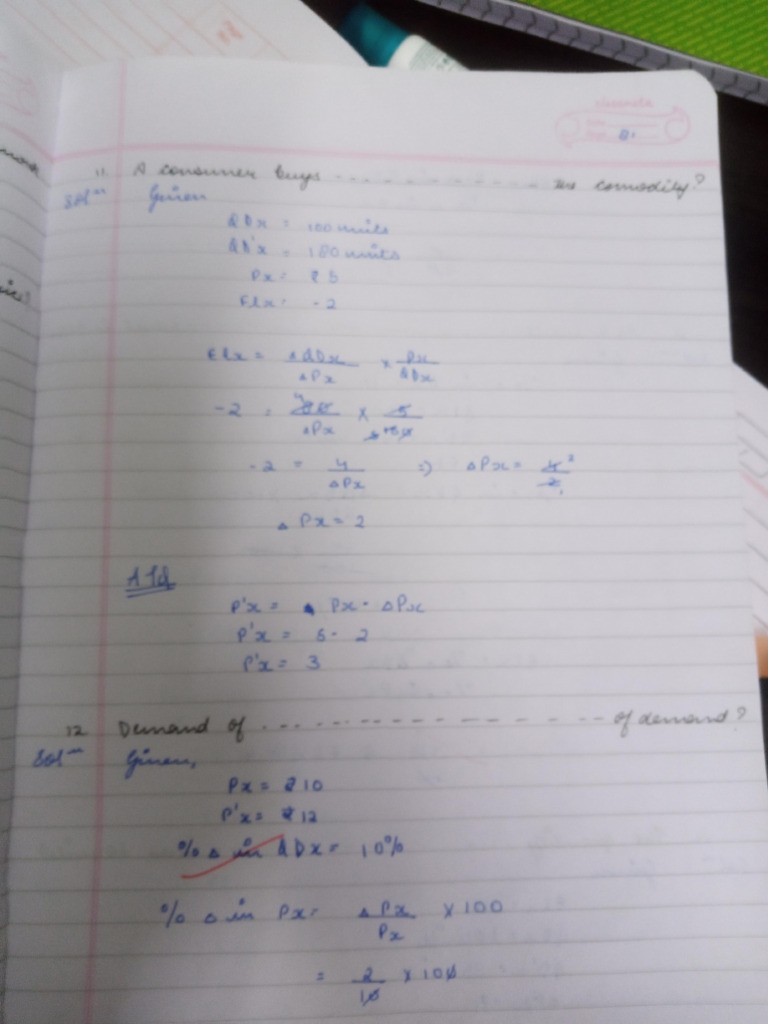 classmate
11 A consumer buys - - - - - - - - - - - - the comodity?
Solⁿ Given
QDx = 100 units
QD'x = 180 units
Px = ₹ 5
Elx = -2
Elx = ΔQDx/ΔPx × Px/QDx
-2 = 80/ΔPx × 5/100
-2 = 4/ΔPx => ΔPx = 4/2
Δ Px = 2
ATQ
P'x = Px - ΔPx
P'x = 5 - 2
P'x = 3
12 Demand of - - - - - - - - - - - - - - - of demand?
Solⁿ Given,
Px = ₹ 10
P'x = ₹ 12
% Δ in QDx = 10%
% Δ in Px = ΔPx/Px × 100
= 2/10 × 100